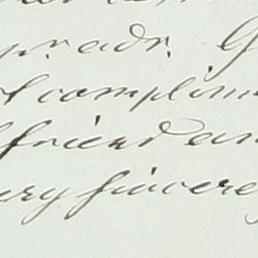 pr. adr. G
t complime
friend an
ery sincere